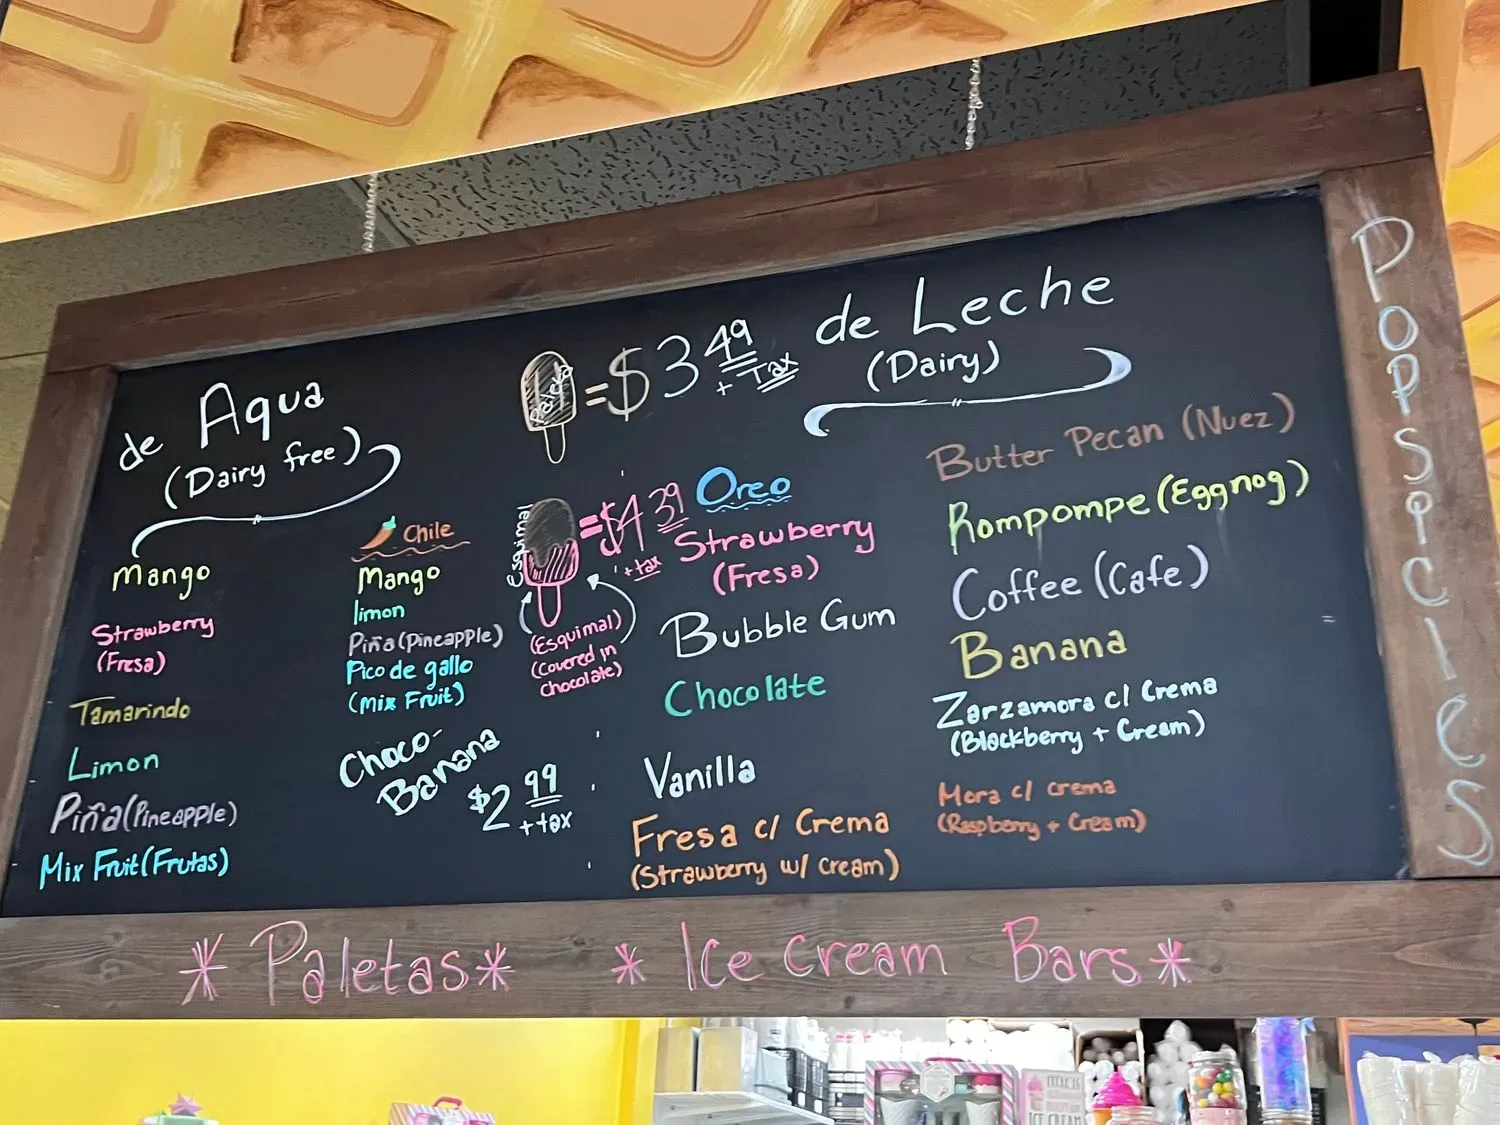 de Aqua
(Dairy free)
Mango
Strawberry
(Fresa)
Tamarindo
Limon
Piña (Pineapple)
Mix Fruit (Frutas)
Chile
Mango
limon
Piña (Pineapple)
Pico de gallo
(Mix Fruit)
Choco-
Banana
$2 99
+ tax
Paleta
= $3 49
+ Tax
Esquimal
= $4 39
+ tax
(Esquimal)
(Covered in
Chocolate)
de Leche
(Dairy)
Oreo
Strawberry
(Fresa)
Bubble Gum
Chocolate
Vanilla
Fresa c/ Crema
(Strawberry w/ Cream)
Butter Pecan (Nuez)
Rompompe (Eggnog)
Coffee (Cafe)
Banana
Zarzamora c/ Crema
(Blackberry + Cream)
Mora c/ crema
(Raspberry + Cream)
Popsicles
*Paletas* *Ice Cream Bars*